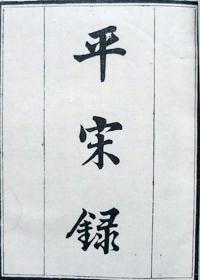 平宋録